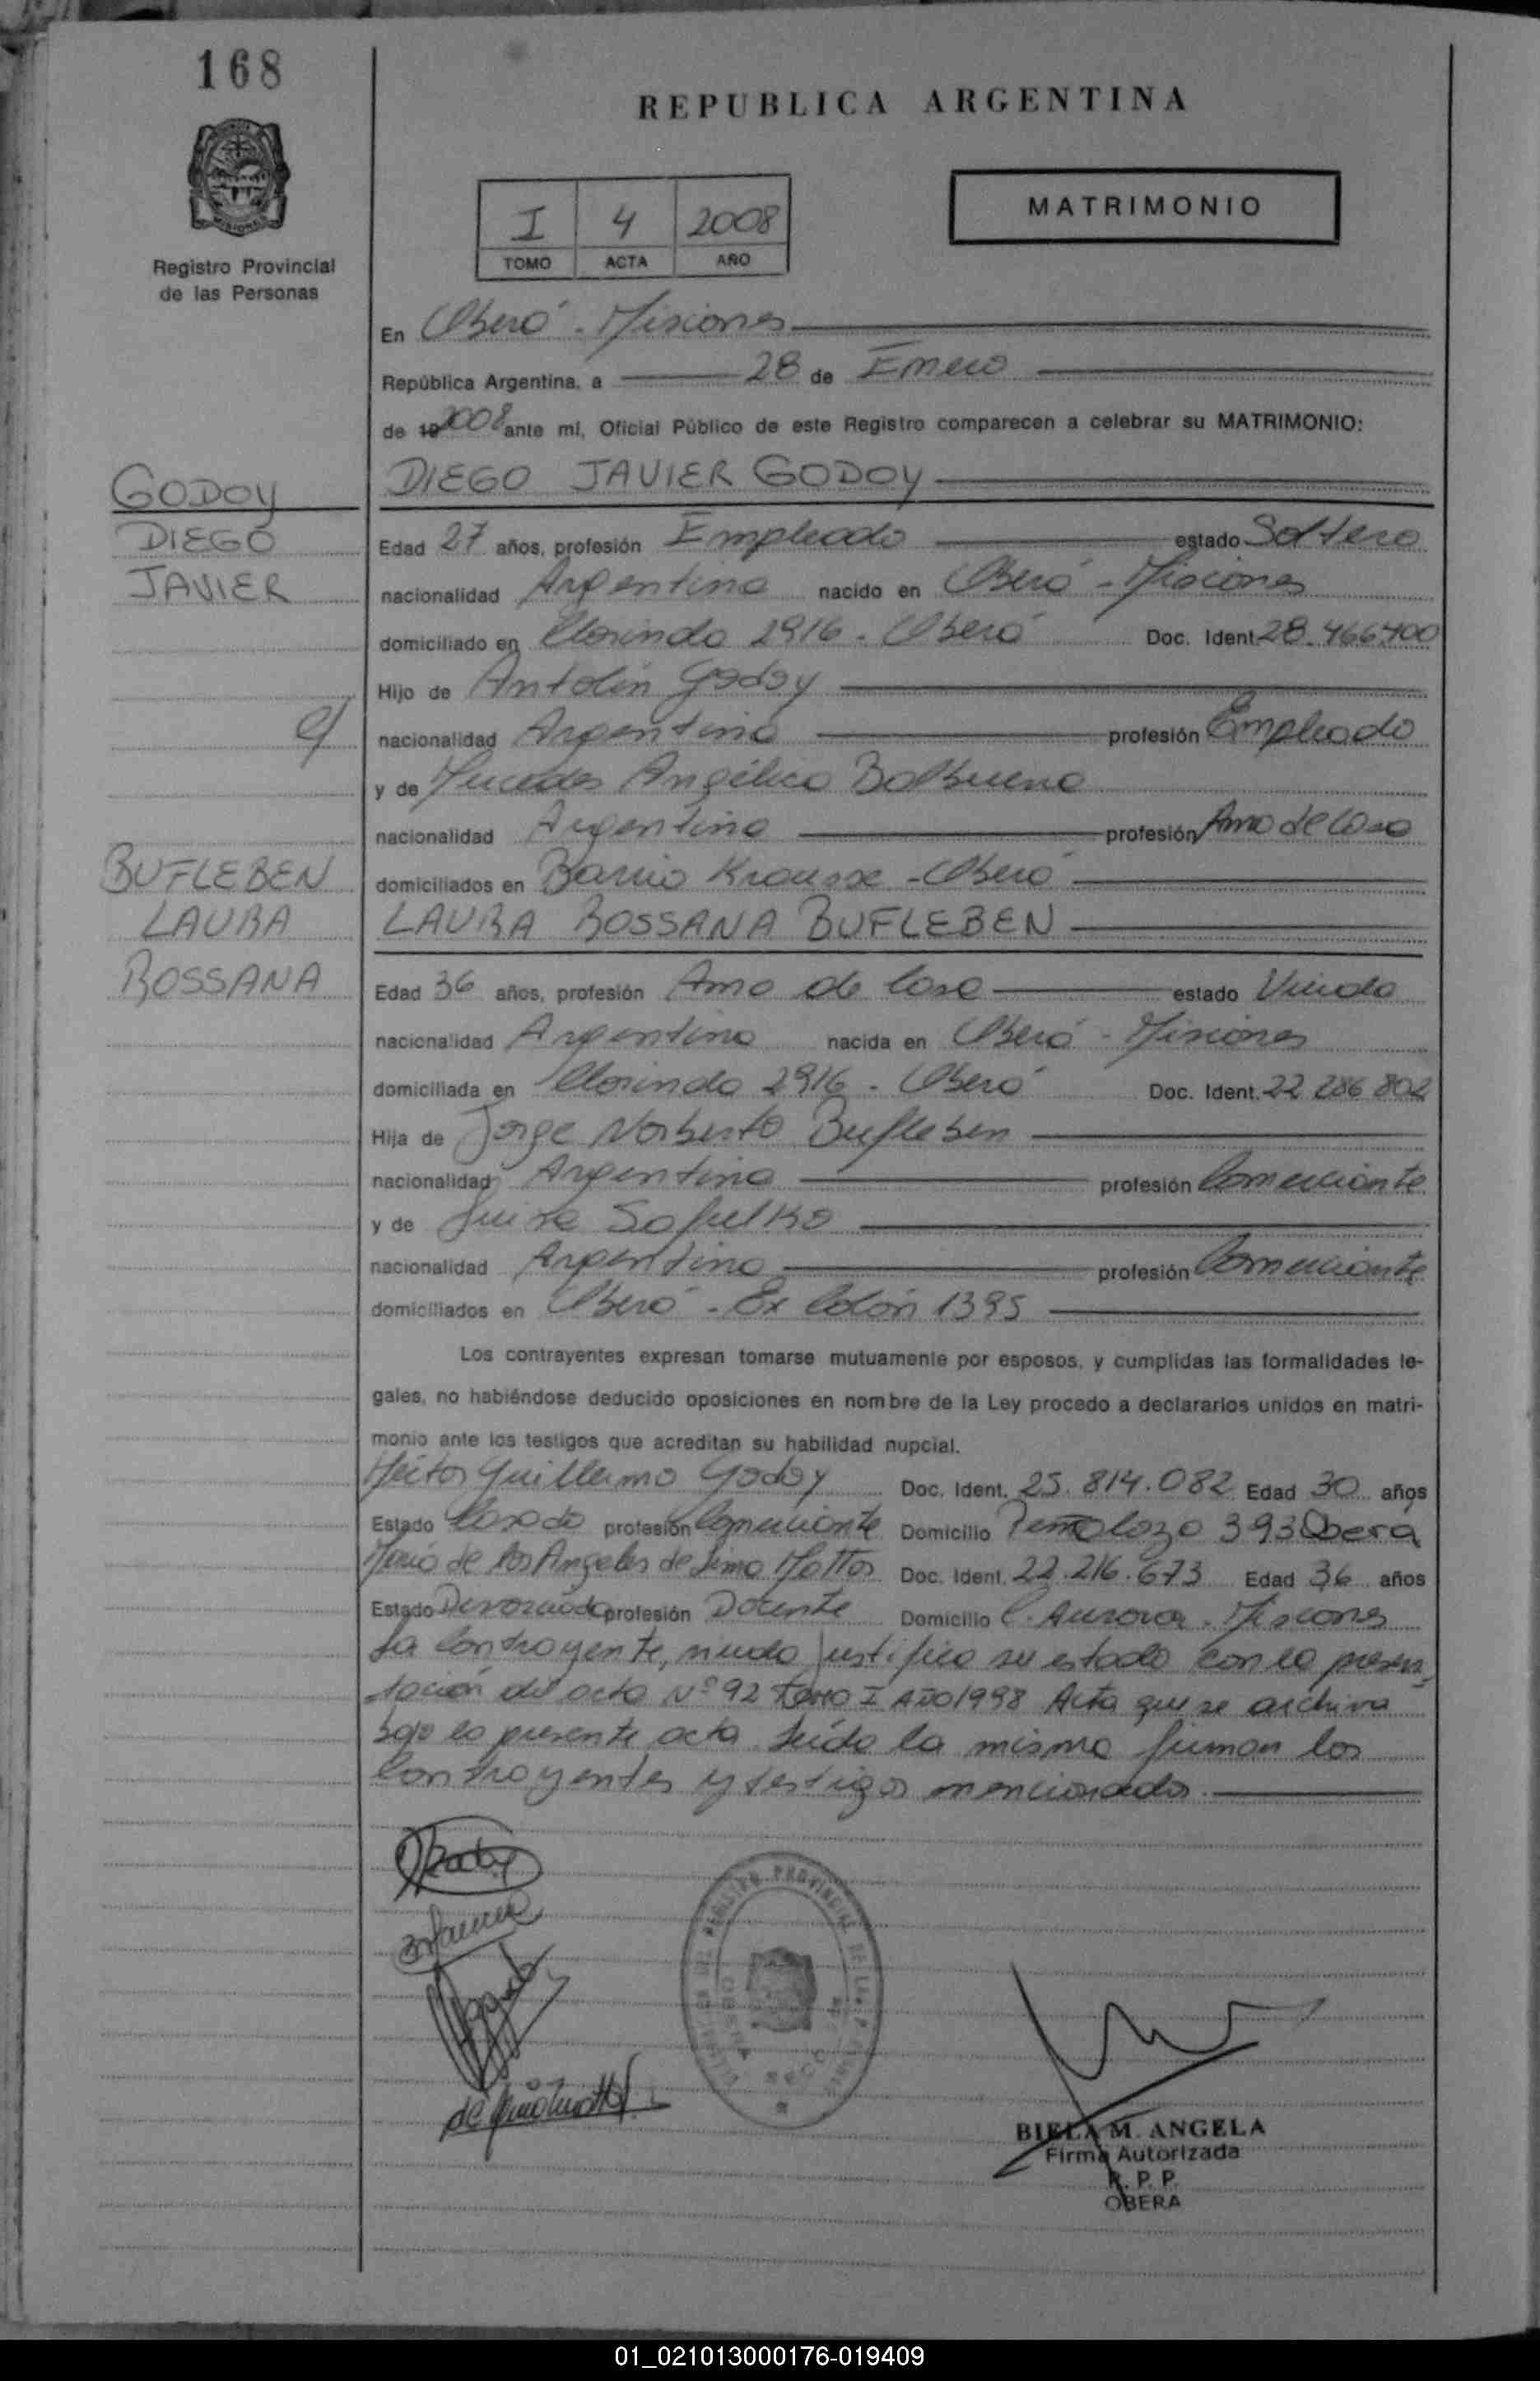 168
REPUBLICA ARGENTINA
I 4 2008
TOMO ACTA AÑO
MATRIMONIO
Registro Provincial
de las Personas
En Oberá - Misiones
República Argentina, a 28 de Enero
de 2008 ante mí, Oficial Público de este Registro comparecen a celebrar su MATRIMONIO:
GODOY
DIEGO
JAVIER
DIEGO JAVIER GODOY
Edad 27 años, profesión Empleado estado Soltero
nacionalidad Argentina nacido en Oberá - Misiones
domiciliado en Clorinda 2916 - Oberá Doc. Ident. 28.466.400
Hijo de Antolín Godoy
nacionalidad Argentina profesión Empleado
y de Mercedes Angélica Balbuena
nacionalidad Argentina profesión Ama de Casa
domiciliados en Barrio Krausse - Oberá
BUFLEBEN
LAURA
ROSSANA
LAURA ROSSANA BUFLEBEN
Edad 36 años, profesión Ama de Casa estado Viuda
nacionalidad Argentina nacida en Oberá - Misiones
domiciliada en Clorinda 2916 - Oberá Doc. Ident. 22.286.802
Hija de Jorge Norberto Bufleben
nacionalidad Argentina profesión Comerciante
y de Luisa
nacionalidad Argentina profesión Comerciante
domiciliados en Oberá - Ex Colón 1395
Los contrayentes expresan tomarse mutuamente por esposos, y cumplidas las formalidades le-
gales, no habiéndose deducido oposiciones en nombre de la Ley procedo a declararlos unidos en matri-
monio ante los testigos que acreditan su habilidad nupcial.
Héctor Guillermo Godoy Doc. Ident. 25.814.082 Edad 30 años
Estado Casado profesión Comerciante Domicilio 393 Oberá
María de los Angeles de Lima Mattos Doc. Ident. 22.216.673 Edad 36 años
Estado Divorciada profesión Docente Domicilio C. Aurora - Misiones
La Contrayente, viuda justifica su estado con la presen-
tación del acta Nº 92 Tomo I Año 1998 Acta que se archiva
bajo la presente acta. Leída la misma firman los
Contrayentes y testigos mencionados.
BIELA M. ANGELA
Firma Autorizada
R. P. P.
OBERA
01_021013000176-019409